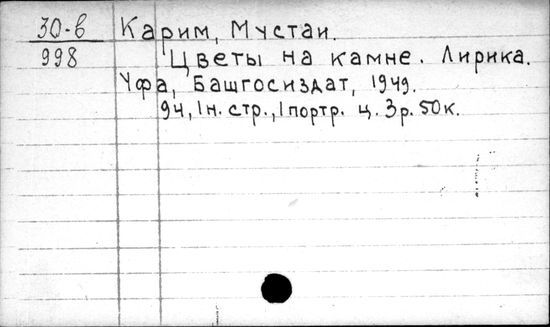 30-в Карим, Мустаи.
998 Цветы на камне. Лирика.
Уфа, Башгосиздат, 1949.
94, 1н. стр., 1 портр. ц. 3р. 50к.